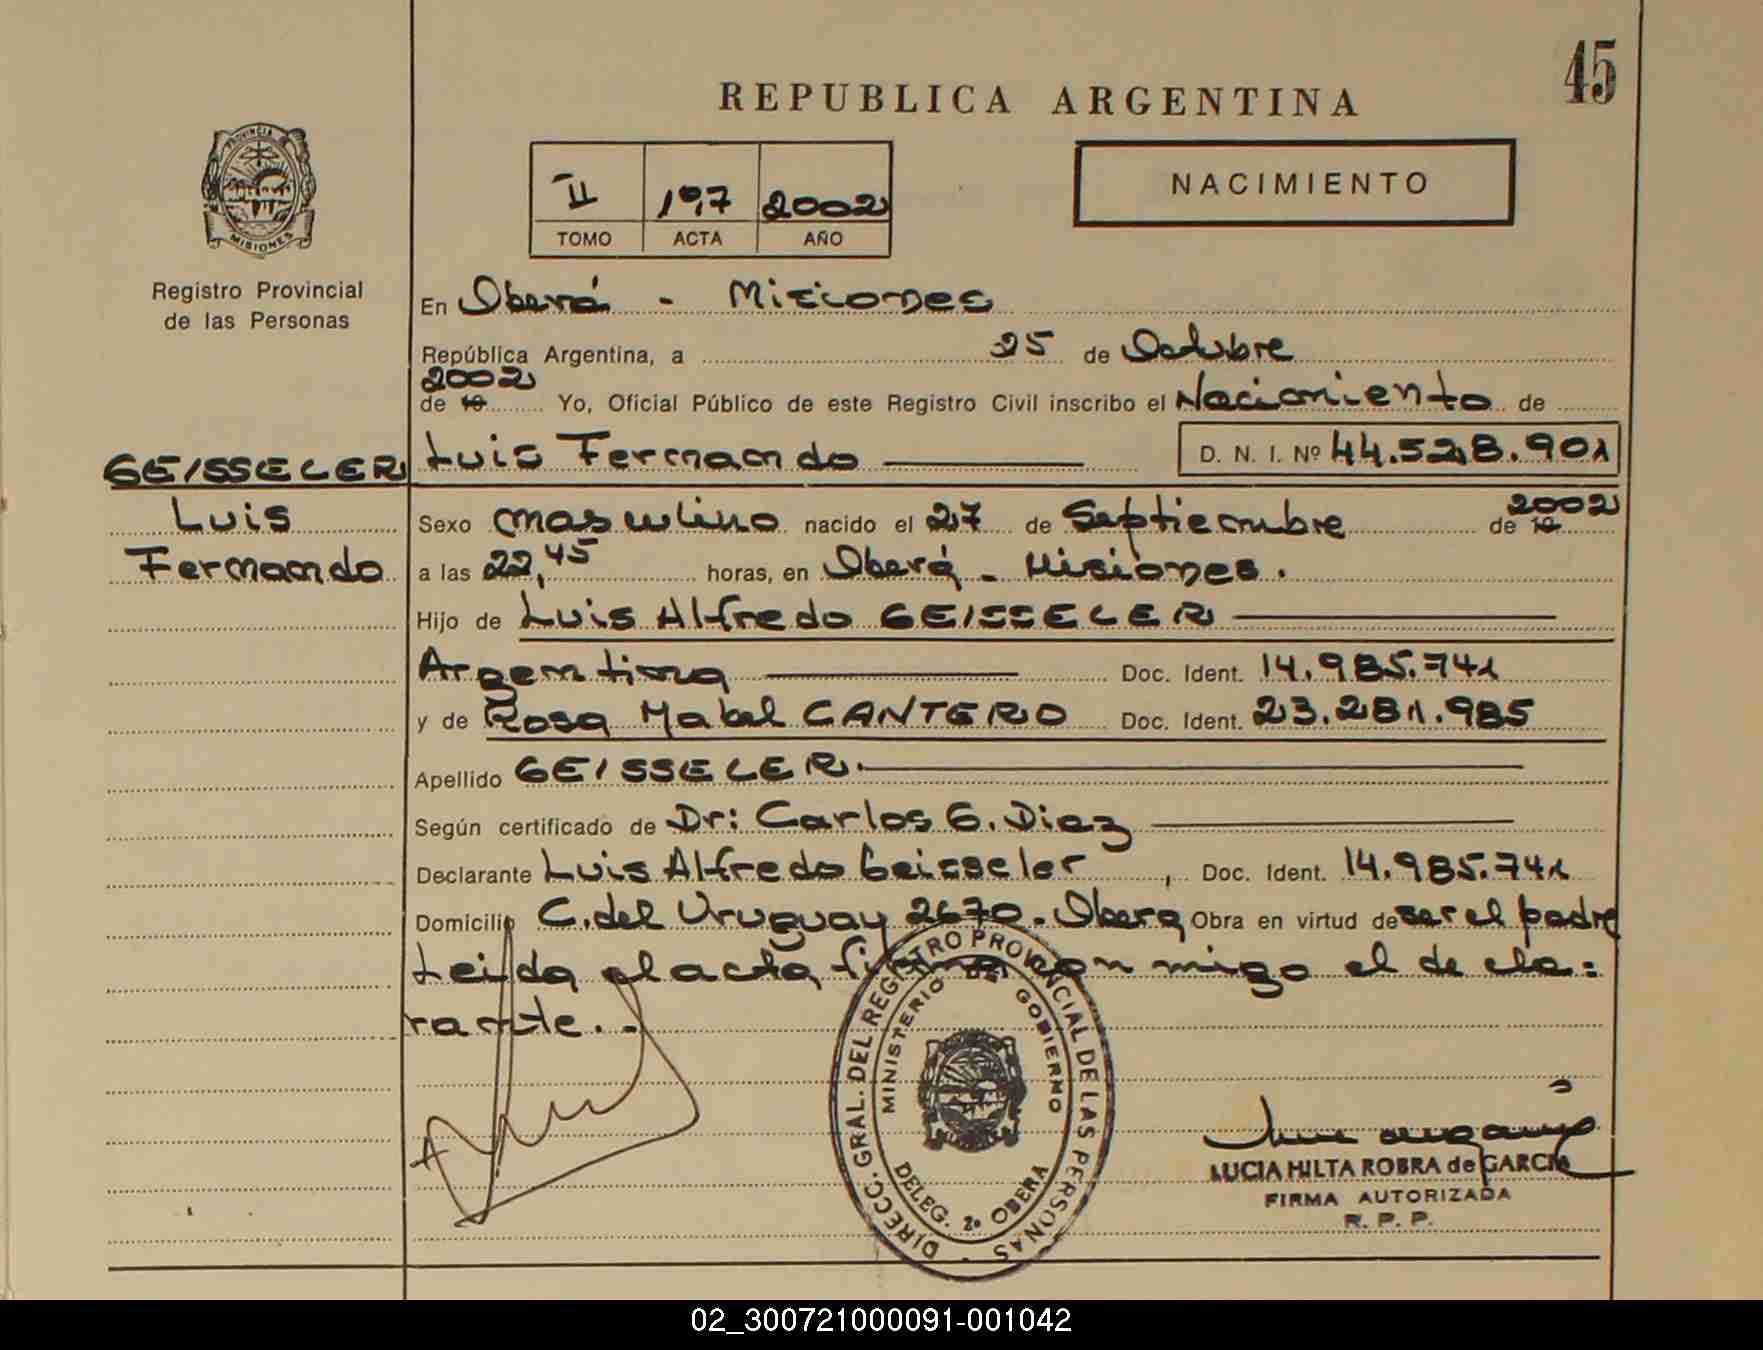 45
REPUBLICA ARGENTINA
PROVINCIA
MISIONES
II 197 2002
TOMO ACTA AÑO
NACIMIENTO
Registro Provincial
de las Personas
En Oberá - Misiones
República Argentina, a 25 de Octubre
2002
de 19 Yo, Oficial Público de este Registro Civil inscribo el Nacimiento de
Luis Fernando D. N. I. Nº 44.528.901
GEISSELER
Luis
Fernando
Sexo masculino nacido el 27 de Septiembre de 19 2002
a las 22,45 horas, en Oberá - Misiones.
Hijo de Luis Alfredo GEISSELER
Argentina Doc. Ident. 14.985.741
y de Rosa Mabel CANTERO Doc. Ident. 23.281.985
Apellido GEISSELER.
Según certificado de Dr: Carlos G. Diaz
Declarante Luis Alfredo Geisseler, Doc. Ident. 14.985.741
Domicilio C. del Uruguay 2670 - Obera Obra en virtud de ser el padre
Leida el acta firma con migo el de cla=
rante. -
DIRECC. GRAL. DEL REGISTRO PROVINCIAL DE LAS PERSONAS
MINISTERIO DE GOBIERNO
DELEG. 2a OBERA
LUCIA HILTA ROBRA de GARCIA
FIRMA AUTORIZADA
R. P. P.
02_300721000091-001042